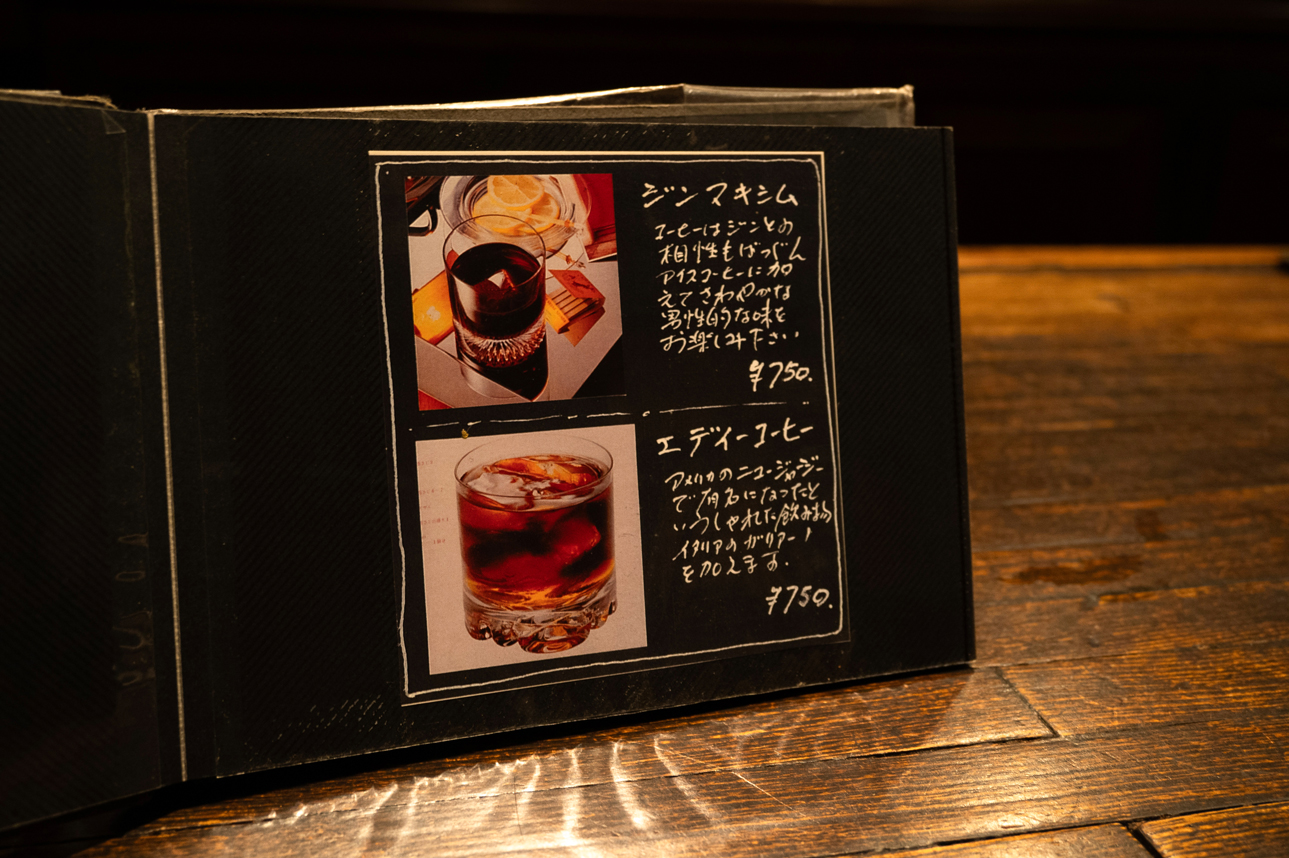 ジンマキシム
コーヒーはジンとの
相性もばつぐん
アイスコーヒーに加
えてさわやかな
男性的な味を
お楽しみ下さい
¥750.
エディーコーヒー
アメリカのニュージャージー
で有名になったと
いうしゃれた飲み物
イタリアのガリアーノ
を加えます.
¥750.